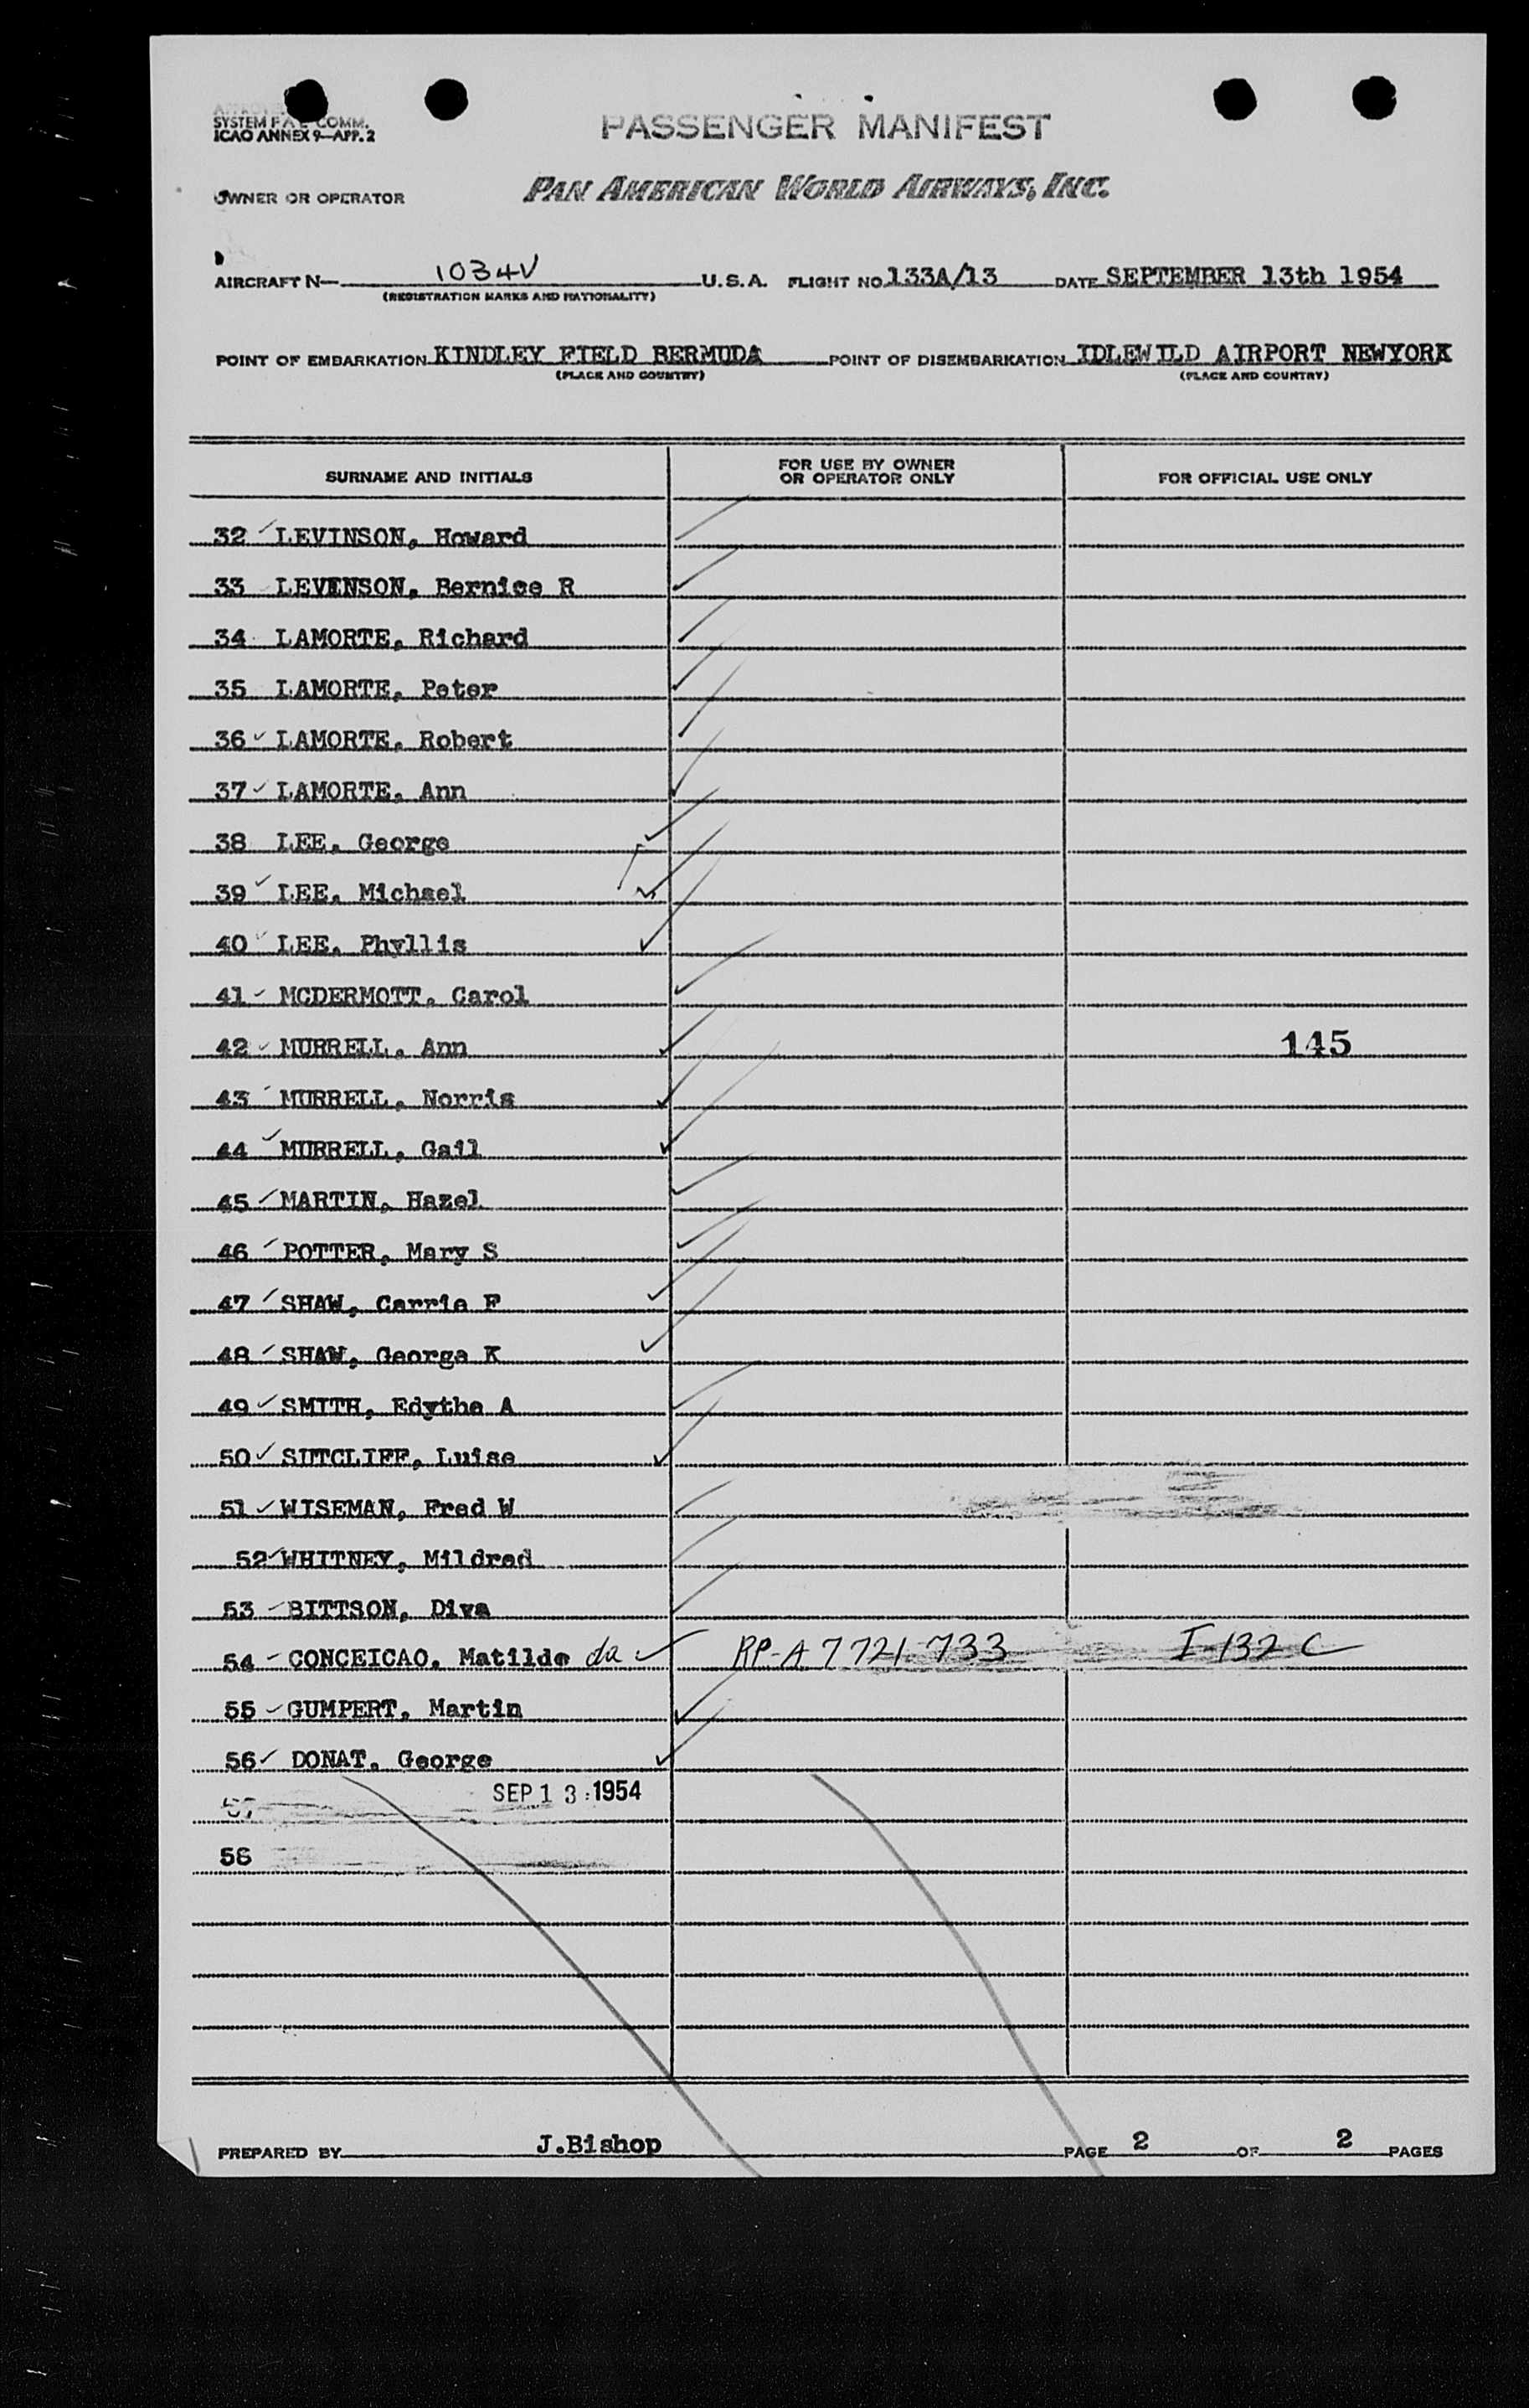 SYSTEM FAL COMM.
ICAO ANNEX 9—APP. 2
PASSENGER MANIFEST
OWNER OR OPERATOR
PAN AMERICAN WORLD AIRWAYS, INC.
AIRCRAFT N— 1034V U.S.A. FLIGHT NO 133A/13 DATE SEPTEMBER 13th 1954
(REGISTRATION MARKS AND NATIONALITY)
POINT OF EMBARKATION KINDLEY FIELD BERMUDA POINT OF DISEMBARKATION IDLEWILD AIRPORT NEWYORK
(PLACE AND COUNTRY) (PLACE AND COUNTRY)
SURNAME AND INITIALS FOR USE BY OWNER OR OPERATOR ONLY FOR OFFICIAL USE ONLY
32 ✓ LEVINSON, Howard ✓
33 LEVENSON, Bernice R ✓
34 LAMORTE, Richard ✓
35 LAMORTE, Peter ✓
36 ✓ LAMORTE, Robert ✓
37 ✓ LAMORTE, Ann ✓
38 LEE, George ✓
39 ✓ LEE, Michael ✓
40 ✓ LEE, Phyllis ✓
41 ✓ MCDERMOTT, Carol ✓
42 ✓ MURRELL, Ann ✓ 145
43 ✓ MURRELL, Norris ✓
44 ✓ MURRELL, Gail ✓
45 ✓ MARTIN, Hazel ✓
46 ✓ POTTER, Mary S ✓
47 ✓ SHAW, Carrie F ✓
48 ✓ SHAW, George K ✓
49 ✓ SMITH, Edythe A ✓
50 ✓ SUTCLIFF, Luise ✓
51 ✓ WISEMAN, Fred W ✓
52 ✓ WHITNEY, Mildred ✓
53 ✓ BITTSON, Diva ✓
54 ✓ CONCEICAO, Matilde da ✓ RP-A 7 721 733 I-132 C
55 ✓ GUMPERT, Martin ✓
56 ✓ DONAT, George ✓
SEP 13 1954
57
58
PREPARED BY J.Bishop PAGE 2 OF 2 PAGES